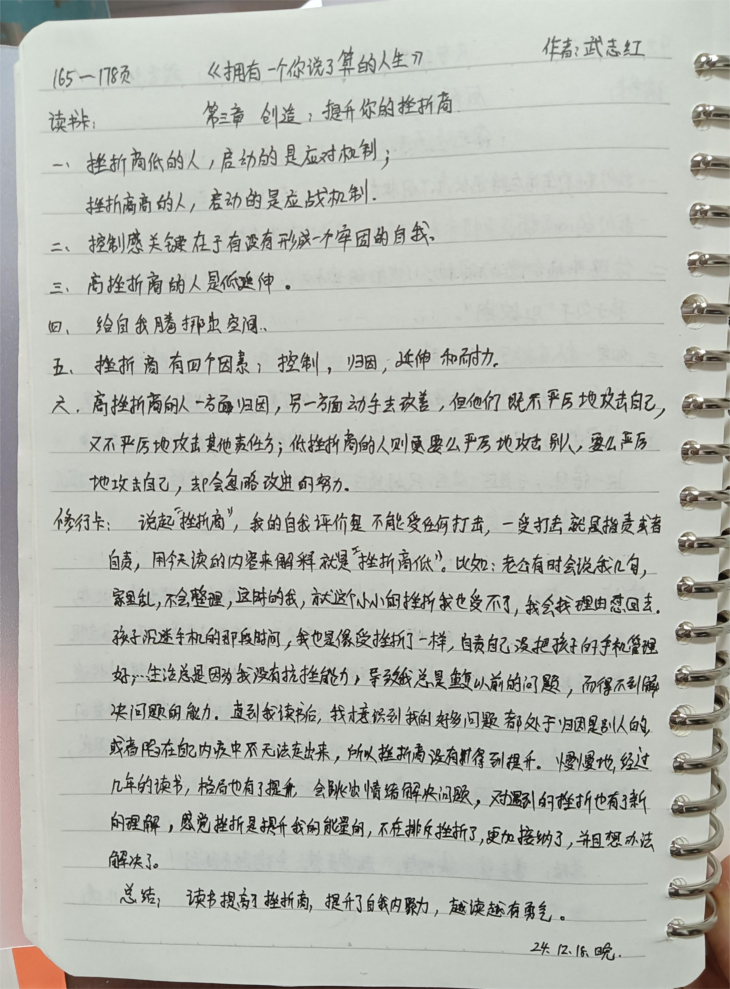 165—178页 《拥有一个你说了算的人生》 作者:武志红
读书卡: 第三章 创造:提升你的挫折商
一、挫折商低的人,启动的是应对机制;
挫折商高的人,启动的是应战机制.
二、控制感关键在于有没有形成一个牢固的自我、
三、高挫折商的人是低延伸。
四、给自我腾挪出空间、
五、挫折商有四个因素:控制,归因,延伸和耐力.
六.高挫折商的人一方面归因,另一方面动手去改善,但他们既不严厉地攻击自己,
又不严厉地攻击其他责任方;低挫折商的人则要么严厉地攻击别人,要么严厉
地攻击自己,却会忽略改进的努力.
修行卡: 说起"挫折商",我的自我评价是不能受任何打击,一受打击就是指责或者
自责,用今天读的内容来解释就是"挫折商低"。比如:老公有时会说我几句,
家里乱,不会整理,这时的我,就这个小小的挫折我也受不了,我会找理由怼回去.
孩子沉迷手机的那段时间,我也是像受挫折了一样,自责自己没把孩子的手机管理
好,…生活总是因为我没有抗挫能力,导致我总是重复以前的问题,而得不到解
决问题的能力.直到我读书后,我才意识到我的好多问题都处于归因是别人的,
或者陷在自己内疚中不无法走出来,所以挫折商没有得到提升.慢慢地,经过
几年的读书,格局也有了提升,会跳出情绪解决问题,对遇到的挫折也有了新
的理解,感觉挫折是提升我的能量的,不在排斥挫折了,更加接纳了,并且想办法
解决了。
总结: 读书提高了挫折商,提升了自我内聚力,越读越有勇气。
24.12.18.晚.